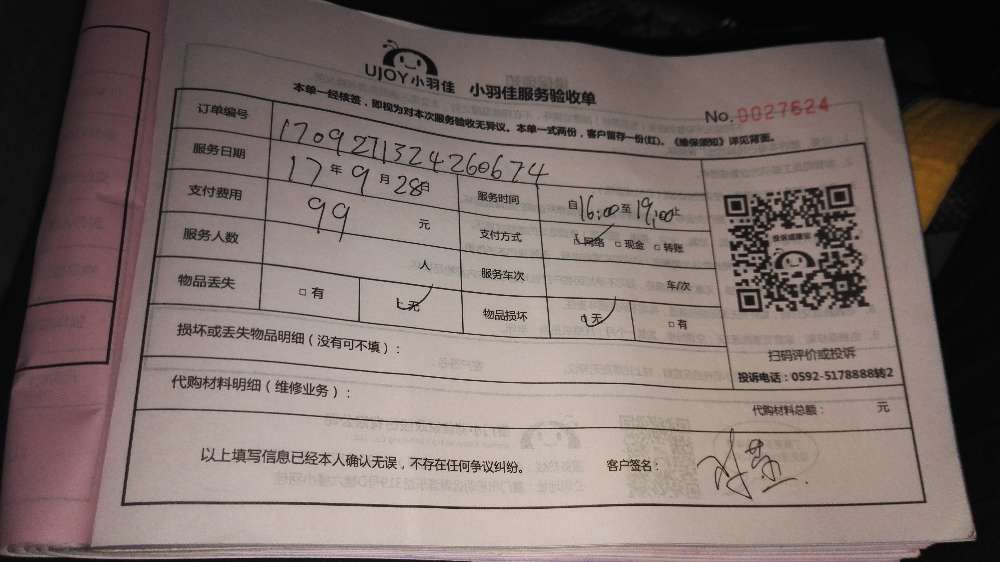 UJOY小羽佳 小羽佳服务验收单
No.0027624
本单一经核签，即视为对本次服务验收无异议。本单一式两份，客户留存一份(红)。《维保须知》详见背面。
订单编号 170927132426067​4
服务日期 17年9月28日 服务时间 自16:00至19:00止
支付费用 99 元 支付方式 □网络 □现金 □转账
服务人数 人 服务车次 车/次
物品丢失 □有 □无 物品损坏 □无 □有
投诉或建议
损坏或丢失物品明细（没有可不填）：
扫码评价或投诉
投诉电话：0592-5178888转2
代购材料明细（维修业务）：
代购材料总额： 元
以上填写信息已经本人确认无误，不存在任何争议纠纷。 客户签名：